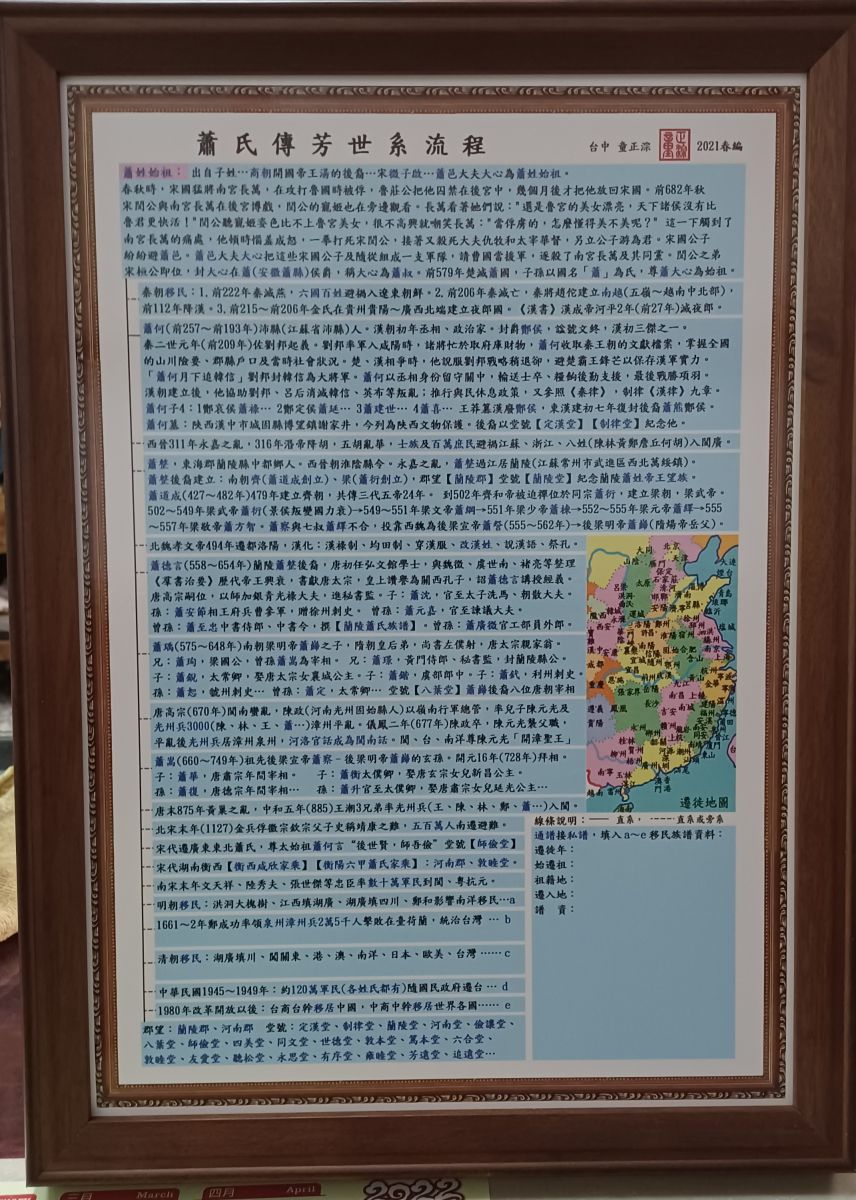 蕭氏傳芳世系流程
台中 童正淙 2021春編
蕭姓始祖：出自子姓…商朝開國帝王湯的後裔…宋微子啟…蕭邑大夫大心為蕭姓始祖。
春秋時，宋國猛將南宮長萬，在攻打魯國時被俘，魯莊公把他囚禁在後宮中，幾個月後才把他放回宋國。前682年秋
宋閔公與南宮長萬在後宮博戲，閔公的寵姬也在旁邊觀看。長萬看著她們說："還是魯宮的美女漂亮，天下諸侯沒有比
魯君更快活！"閔公聽寵姬姿色比不上魯宮美女，很不高興就嘲笑長萬："當俘虜的，怎麼懂得美不美呢？" 這一下觸到了
南宮長萬的痛處，他頓時惱羞成怒，一拳打死宋閔公，接著又殺死大夫仇牧和太宰華督，另立公子游為君。宋國公子
紛紛避蕭邑。蕭邑大夫大心把這些宋國公子及隨從組成一支軍隊，請曹國當援軍，逐殺了南宮長萬及其同黨。閔公之弟
宋桓公即位，封大心在蕭(安徽蕭縣)侯爵，稱大心為蕭叔。前579年楚滅蕭國，子孫以國名「蕭」為氏，尊蕭大心為始祖。
秦朝移民：1.前222年秦滅燕，六國百姓避禍入遼東朝鮮。2.前206年秦滅亡，秦將趙佗建立南越(五嶺～越南中北部)，
前112年降漢。3.前215～前206年金氏在貴州貴陽～廣西北端建立夜郎國。《漢書》漢成帝河平2年(前27年)滅夜郎。
蕭何(前257～前193年)沛縣(江蘇省沛縣)人。漢朝初年丞相、政治家。封爵酇侯，諡號文終，漢初三傑之一。
秦二世元年(前209年)佐劉邦起義。劉邦率軍入咸陽時，諸將忙於取府庫財物，蕭何收取秦王朝的文獻檔案，掌握全國
的山川險要、郡縣戶口及當時社會狀況。楚、漢相爭時，他說服劉邦戰略稍退卻，避楚霸王鋒芒以保存漢軍實力。
「蕭何月下追韓信」劉邦封韓信為大將軍。蕭何以丞相身份留守關中，輸送士卒、糧餉後勤支援，最後戰勝項羽。
漢朝建立後，他協助劉邦、呂后消滅韓信、英布等叛亂；推行與民休息政策，又參照《秦律》，制律《漢律》九章。
蕭何子4：1酇哀侯蕭祿… 2酇定侯蕭延… 3蕭建世… 4蕭喜… 王莽篡漢廢酇侯，東漢建初七年復封後裔蕭熊酇侯。
蕭何墓：陝西漢中市城固縣博望鎮謝家井，今列為陝西文物保護。後裔以堂號【定漢堂】【制律堂】紀念他。
西晉311年永嘉之亂，316年滔帝降胡，五胡亂華，士族及百萬庶民避禍江蘇、浙江、八姓(陳林黃鄭詹丘何胡)入閩廣。
蕭整，東海郡蘭陵縣中都鄉人。西晉朝淮陰縣令。永嘉之亂，蕭整過江居蘭陵(江蘇常州市武進區西北萬綏鎮)。
蕭整後裔建立：南朝齊(蕭道成創立)、梁(蕭衍創立)，郡望【蘭陵郡】堂號【蘭陵堂】紀念蘭陵蕭姓帝王望族。
蕭道成(427～482年)479年建立齊朝，共傳三代五帝24年。 到502年齊和帝被迫禪位於同宗蕭衍，建立梁朝，梁武帝。
502～549年梁武帝蕭衍(景侯叛變國力衰)→549～551年梁文帝蕭綱→551年梁少帝蕭棟→552～555年梁元帝蕭繹→555
～557年梁敬帝蕭方智。蕭察與七叔蕭繹不合，投靠西魏為後梁宣帝蕭詧(555～562年)→後梁明帝蕭巋(隋煬帝岳父)。
北魏孝文帝494年遷都洛陽，漢化：漢祿制、均田制、穿漢服、改漢姓、說漢語、祭孔。
蕭德言(558～654年)蘭陵蕭整後裔，唐初任弘文館學士，與魏徵、虞世南、褚亮等整理
《羣書治要》歷代帝王興衰，書獻唐太宗，皇上讚譽為關西孔子，詔蕭德言講授經義。
唐高宗嗣位，以師加銀青光祿大夫，進秘書監。子：蕭沈，官至太子洗馬、朝散大夫。
孫：蕭安節相王府兵曹參軍，贈徐州刺史。 曾孫：蕭元嘉，官至諫議大夫。
曾孫：蕭至忠中書侍郎、中書令，撰【蘭陵蕭氏族譜】。曾孫：蕭廣微官工部員外郎。
蕭瑀(575～648年)南朝梁明帝蕭巋之子，隋朝皇后弟，尚書左僕射，唐太宗親家翁。
兄：蕭珣，梁國公，曾孫蕭嵩為宰相。 兄：蕭璟，黃門侍郎、秘書監，封蘭陵縣公。
子：蕭銳，太常卿，娶唐太宗女襄城公主。子：蕭鍇，虞部郎中。子：蕭釴，利州刺史。
孫：蕭恕，虢州刺史… 曾孫：蕭定，太常卿… 堂號【八葉堂】蕭巋後裔八位唐朝宰相
唐高宗(670年)閩南蠻亂，陳政(河南光州固始縣人)以嶺南行軍總管，率兒子陳元光及
光州兵3000(陳、林、王、蕭…)漳州平亂。儀鳳二年(677年)陳政卒，陳元光襲父職，
平亂後光州兵居漳州泉州，河洛官話成為閩南話。閩、台、南洋尊陳元光「開漳聖王」
蕭嵩(660～749年)祖先後梁宣帝蕭察－後梁明帝蕭巋的玄孫。開元16年(728年)拜相。
子：蕭華，唐肅宗年間宰相。 子：蕭衡太僕卿，娶唐玄宗女兒新昌公主。
孫：蕭復，唐德宗年間宰相。 孫：蕭升官至太僕卿，娶唐肅宗女兒延光公主…
唐末875年黃巢之亂，中和五年(885)王潮3兄弟率光州兵(王、陳、林、鄭、蕭…)入閩。
北宋末年(1127)金兵俘徽宗欽宗父子史稱靖康之難，五百萬人南遷避難。
宋代遷廣東東北蕭氏，尊太始祖蕭何言“後世賢，師吾儉”堂號【師儉堂】
宋代湖南衡西【衡西咸欣家乘】【衡陽六甲蕭氏家乘】：河南郡、敦睦堂。
南宋末年文天祥、陸秀夫、張世傑等忠臣率數十萬軍民到閩、粵抗元。
明朝移民：洪洞大槐樹、江西填湖廣、湖廣填四川、鄭和影響南洋移民…a
1661～2年鄭成功率領泉州漳州兵2萬5千人擊敗在臺荷蘭，統治台灣 … b
清朝移民：湖廣填川、闖關東、港、澳、南洋、日本、歐美、台灣 …… c
中華民國1945～1949年：約120萬軍民(各姓氏都有)隨國民政府遷台 … d
1980年改革開放以後：台商台幹移居中國，中商中幹移居世界各國…… e
郡望：蘭陵郡、河南郡 堂號：定漢堂、制律堂、蘭陵堂、河南堂、儉讓堂、
八葉堂、師儉堂、四美堂、同文堂、世德堂、敦本堂、篤本堂、六合堂、
敦睦堂、友愛堂、聽松堂、永思堂、有序堂、雍睦堂、芳遠堂、追遠堂…
遷徙地圖
線條說明：—— 直系， ‥‥‥直系或旁系
通譜接私譜，填入a～e移民族譜資料：
遷徙年：
始遷祖：
祖籍地：
遷入地：
譜 資：
三月 March
四月 April
2022